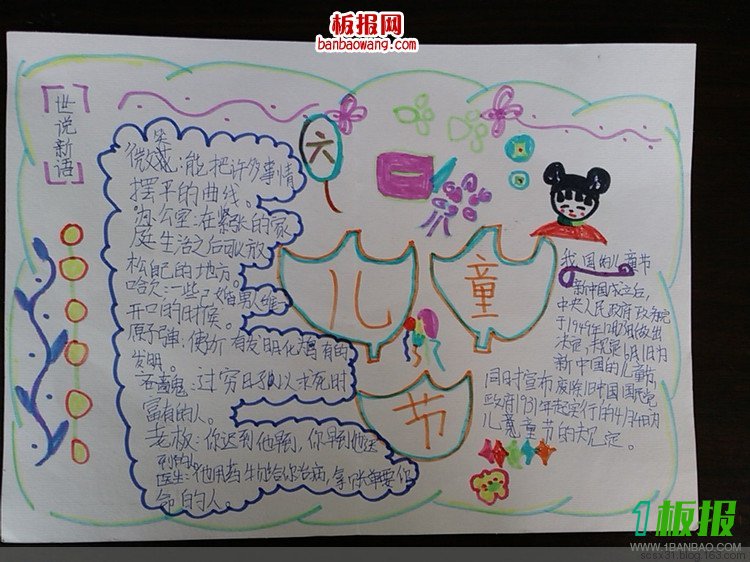 板报网
banbaowang.com
世说新语
六
一
儿
童
节
笑
微笑:能把许多事情
摆平的曲线。
办公室:在紧张的家
庭生活之后可以放
松自己的地方。
哈欠:一些已婚男人唯一
开口的时候。
原子弹:使所有发明化为有的
发明。
吝啬鬼:过穷日子以求死时
富有的人。
老板:你迟到他早到,你早到他迟
到的人。
医生:他用药物给你治病,拿账单要你
命的人。
我国的儿童节
新中国成立后,
中央人民政府政务院
于1949年12月做出
决定,规定6月1日为
新中国的儿童节,
同时宣布废除旧中国国民党
政府1931年起实行的4月4日为
儿童节的决定。
1板报
WWW.1BANBAO.COM
scsx31.blog.163.com